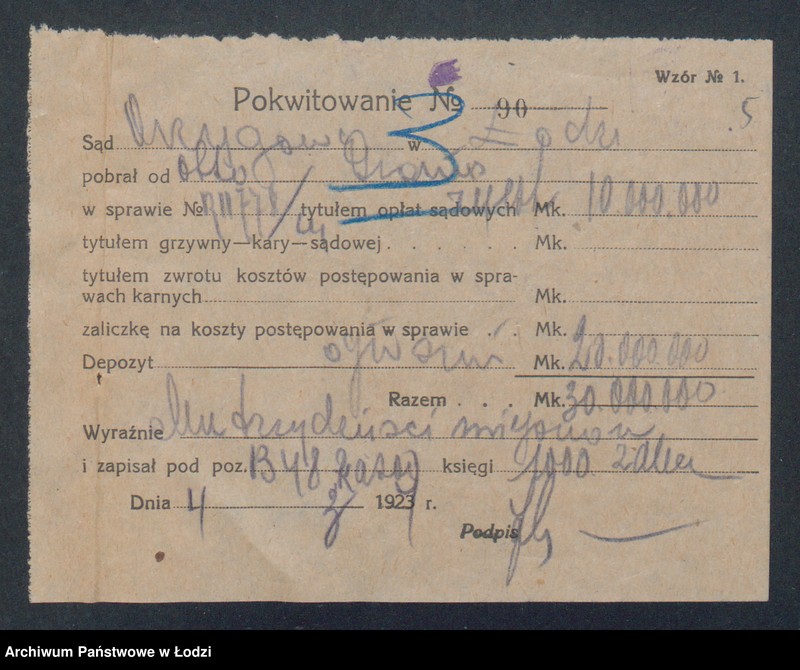 Wzór № 1.
Pokwitowanie № 90
5
Sąd Okręgowy w Łodzi
pobrał od Otto
w sprawie № tytułem opłat sądowych Mk. 10.000.000
tytułem grzywny—kary—sądowej . . . . . . Mk.
tytułem zwrotu kosztów postępowania w spra-
wach karnych Mk.
zaliczkę na koszty postępowania w sprawie . . Mk.
Depozyt ogłoszeń Mk. 20.000.000
Razem . . . Mk. 30.000.000
Wyraźnie Mk trzydzieści miljonów
i zapisał pod poz. księgi
Dnia 4 1923 r.
Podpis
Archiwum Państwowe w Łodzi